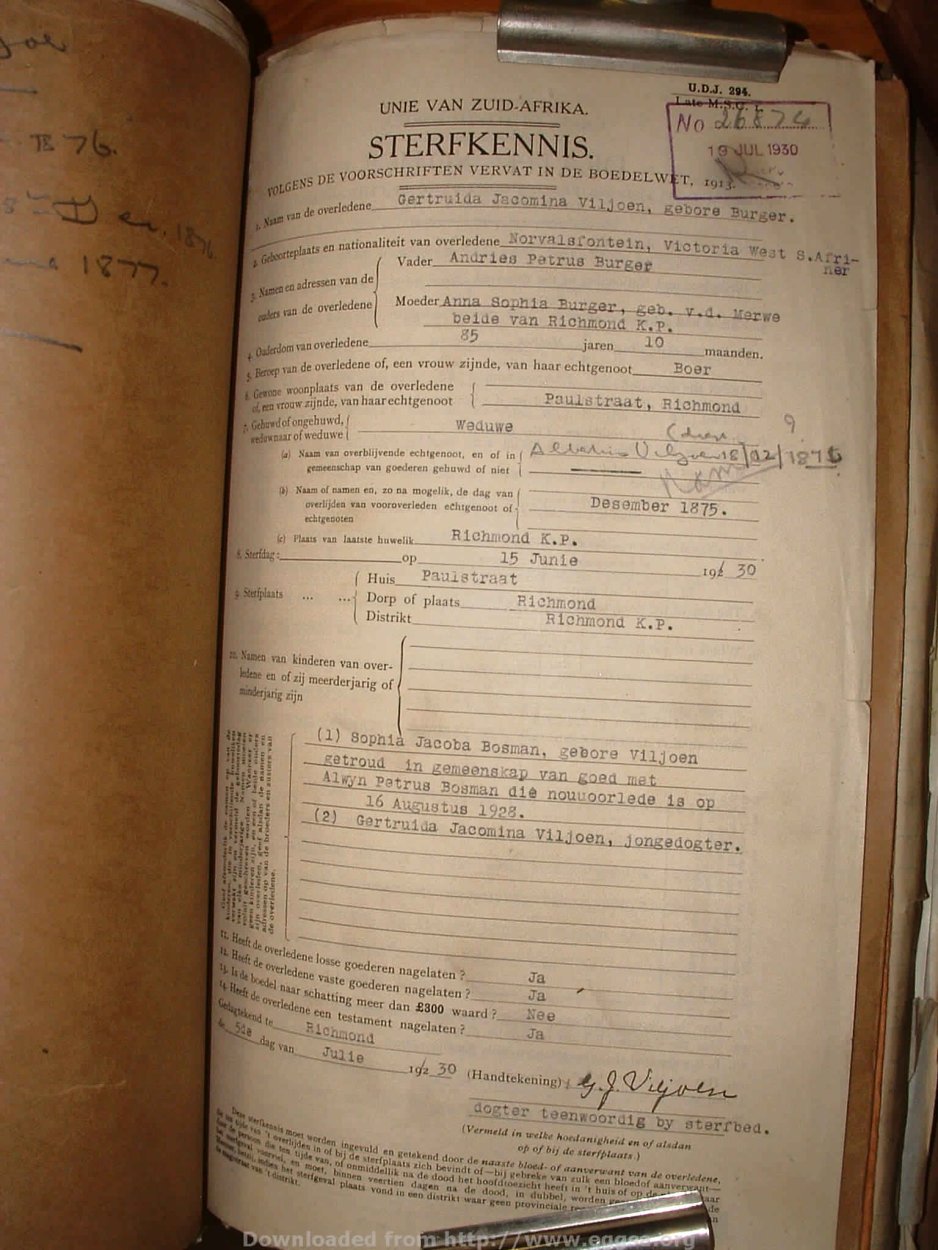 76.
1876
1877.
U.D.J. 294.
Late M.S.C. 1.
UNIE VAN ZUID-AFRIKA.
No 26874
STERFKENNIS.
19 JUL 1930
VOLGENS DE VOORSCHRIFTEN VERVAT IN DE BOEDELWET, 1913.
1. Naam van de overledene Gertruida Jacomina Viljoen, gebore Burger.
2. Geboorteplaats en nationaliteit van overledene Norvalsfontein, Victoria West S.Afri-
ner
3. Namen en adressen van de ouders van de overledene
Vader Andries Petrus Burger
Moeder Anna Sophia Burger, geb. v.d. Merwe
beide van Richmond K.P.
4. Ouderdom van overledene 85 jaren 10 maanden.
5. Beroep van de overledene of, een vrouw zijnde, van haar echtgenoot Boer
6. Gewone woonplaats van de overledene
of, een vrouw zijnde, van haar echtgenoot Paulstraat, Richmond
7. Gehuwd of ongehuwd,
weduwnaar of weduwe Weduwe
(a) Naam van overblijvende echtgenoot, en of in
gemeenschap van goederen gehuwd of niet
Viljoen 18/12/1876
(b) Naam of namen en, zo na mogelik, de dag van
overlijden van vooroverleden echtgenoot of
echtgenoten
Desember 1875.
(c) Plaats van laatste huwelik Richmond K.P.
8. Sterfdag: op 15 Junie 192 30
9. Sterfplaats ... ...
Huis Paulstraat
Dorp of plaats Richmond
Distrikt Richmond K.P.
10. Namen van kinderen van over-
ledene en of zij meerderjarig of
minderjarig zijn
(1) Sophia Jacoba Bosman, gebore Viljoen
getroud in gemeenskap van goed met
Alwyn Petrus Bosman die nouuoorlede is op
16 Augustus 1928.
(2) Gertruida Jacomina Viljoen, jongedogter.
11. Heeft de overledene losse goederen nagelaten ? Ja
12. Heeft de overledene vaste goederen nagelaten ? Ja
13. Is de boedel naar schatting meer dan £300 waard ? Nee
14. Heeft de overledene een testament nagelaten ? Ja
Gedagtekend te Richmond
de 5de dag van Julie 192 30
(Handtekening) G. J. Viljoen
dogter teenwoordig by sterfbed.
(Vermeld in welke hoedanigheid en of alsdan
op of bij de sterfplaats.)
Deze sterfkennis moet worden ingevuld en getekend door de naaste bloed- of aanverwant van de overledene,
Downloaded from http://www.eggsa.org